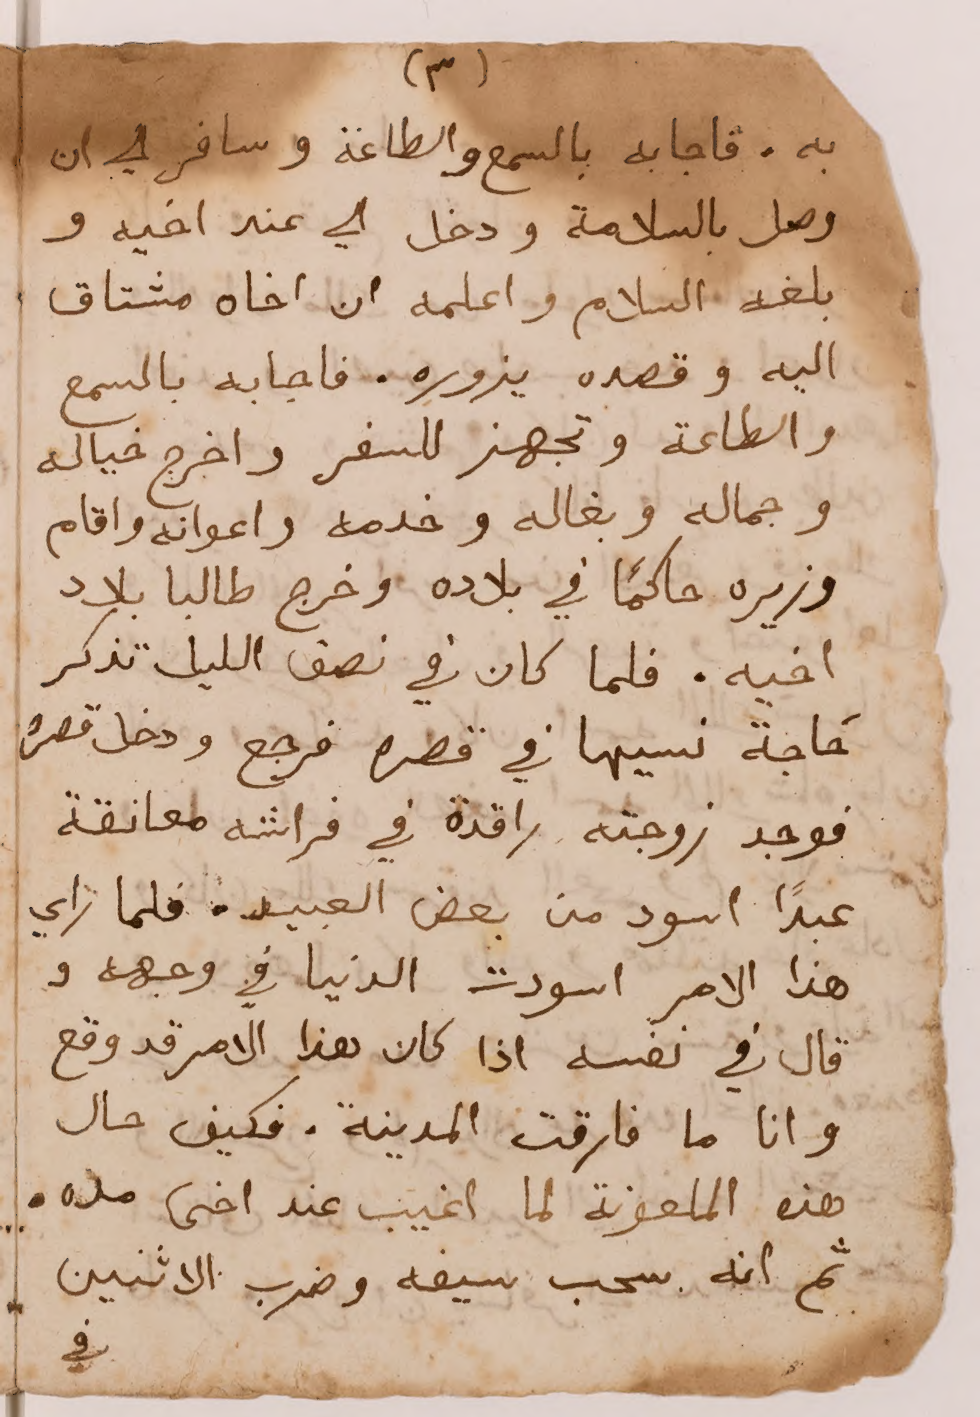 (٣)
به . فاجابه بالسمع والطاعة و سافر الي ان
وصل بالسلامة و دخل الي عند اخيه و
بلغه السلام و اعلمه ان اخاه مشتاق
اليه و قصده يزوره . فاجابه بالسمع
و الطاعة و تجهز للسفر و اخرج خياله
و جماله و بغاله و خدمه و اعوانه و اقام
وزيره حاكمًا في بلاده و خرج طالبا بلاد
اخيه . فلما كان في نصف الليل تذكر
حاجة نسيها في قصره فرجع و دخل قصره
فوجد زوجته راقدة في فراشه معانقة
عبدًا اسود من بعض العبيد . فلما راي
هذا الامر اسودت الدنيا في وجهه و
قال في نفسه اذا كان هذا الامر قد وقع
و انا ما فارقت المدينة . فكيف حال
هذه الملعونة لما اغيب عند اخى مده .
ثم انه سحب سيفه و ضرب الاثنين
في